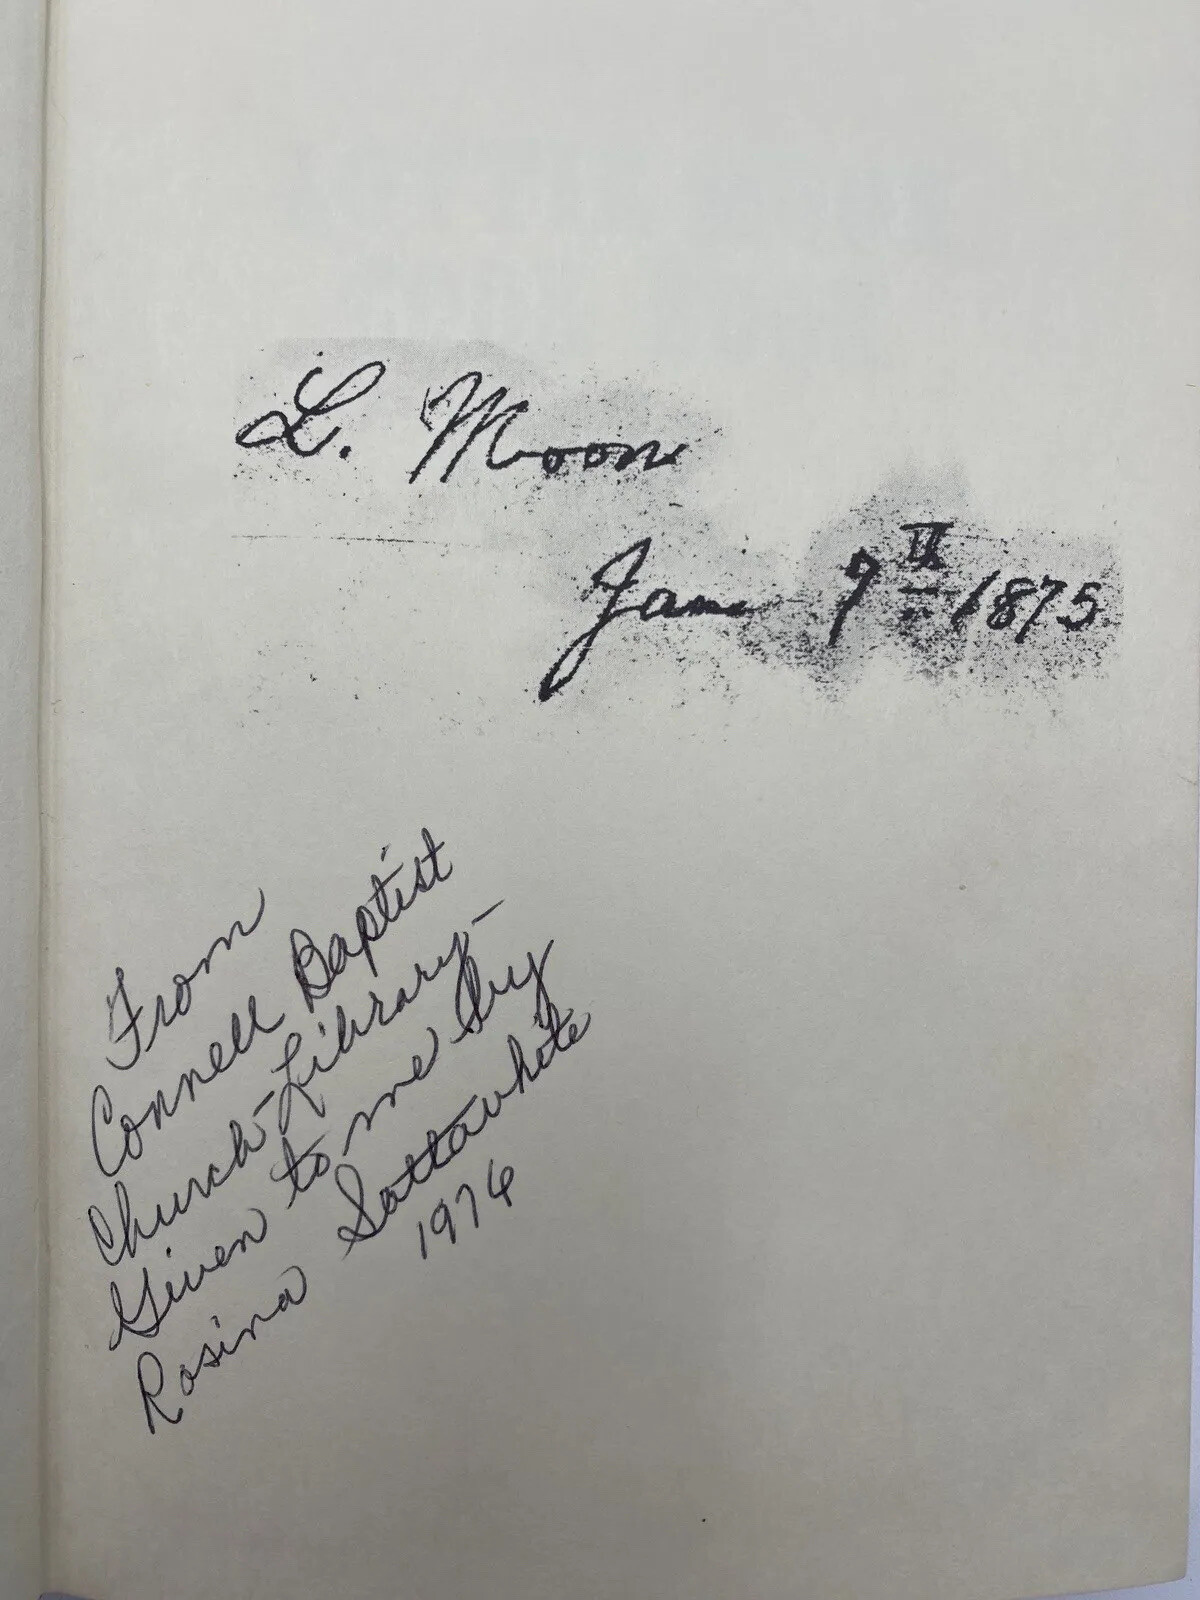 L. Moon
Jane 7th 1875
From
Connell Baptist
Church-Library-
Given to me by
Rosina Sattawhite
1974